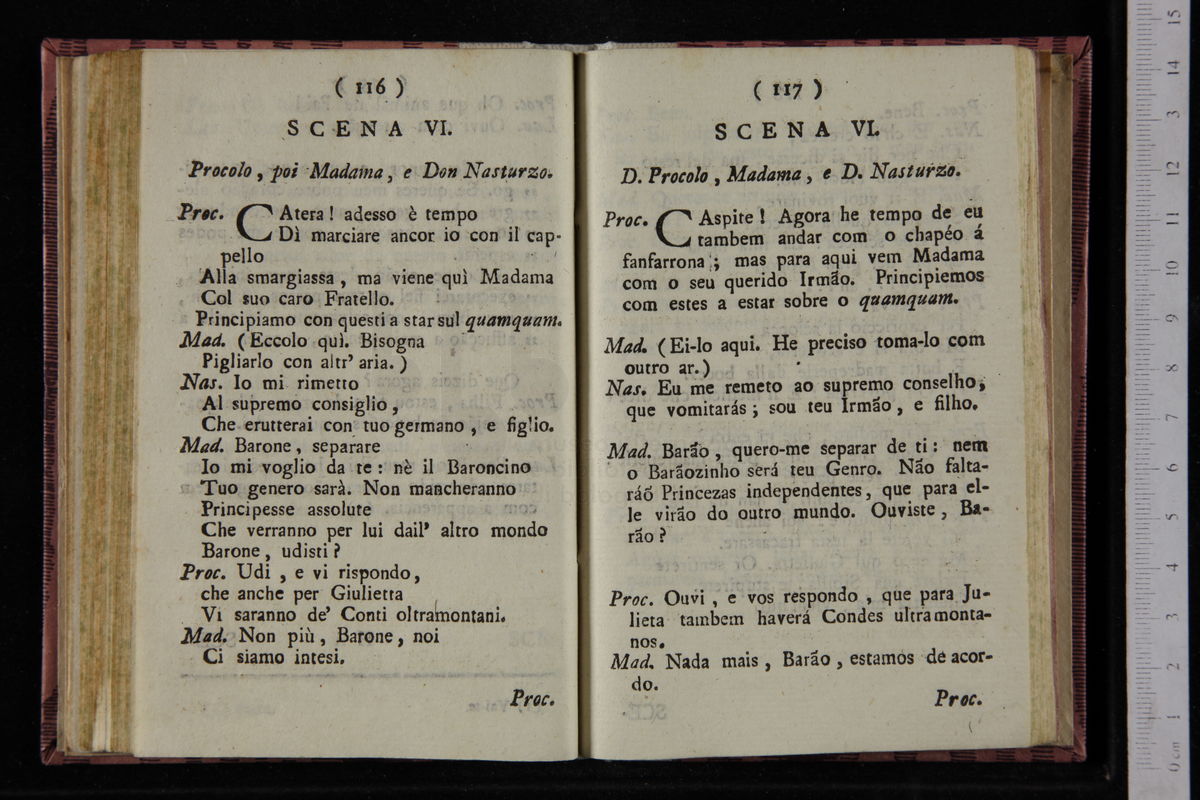 ( 116 )
SCENA VI.
Procolo, poi Madama, e Don Nasturzo.
Proc. CAtera! adesso è tempo
Dì marciare ancor io con il cap-
pello
Alla smargiassa, ma viene quì Madama
Col suo caro Fratello.
Principiamo con questi a star sul quamquam.
Mad. (Eccolo quì. Bisogna
Pigliarlo con altr' aria.)
Nas. Io mi rimetto
Al supremo consiglio,
Che erutterai con tuo germano, e figlio.
Mad. Barone, separare
Io mi voglio da te: nè il Baroncino
Tuo genero sarà. Non mancheranno
Principesse assolute
Che verranno per lui dall' altro mondo
Barone, udisti?
Proc. Udi, e vi rispondo,
che anche per Giulietta
Vi saranno de' Conti oltramontani.
Mad. Non più, Barone, noi
Ci siamo intesi.
Proc.
( 117 )
SCENA VI.
D. Procolo, Madama, e D. Nasturzo.
Proc. CAspite! Agora he tempo de eu
tambem andar com o chapéo á
fanfarrona; mas para aqui vem Madama
com o seu querido Irmão. Principiemos
com estes a estar sobre o quamquam.
Mad. (Ei-lo aqui. He preciso toma-lo com
outro ar.)
Nas. Eu me remeto ao supremo conselho,
que vomitarás; sou teu Irmão, e filho.
Mad. Barão, quero-me separar de ti: nem
o Barãozinho será teu Genro. Não falta-
ráõ Princezas independentes, que para el-
le virão do outro mundo. Ouviste, Ba-
rão?
Proc. Ouvi, e vos respondo, que para Ju-
lieta tambem haverá Condes ultramonta-
nos.
Mad. Nada mais, Barão, estamos de acor-
do.
Proc.
15
14
13
12
11
10
9
8
7
6
5
4
3
2
1
0 cm